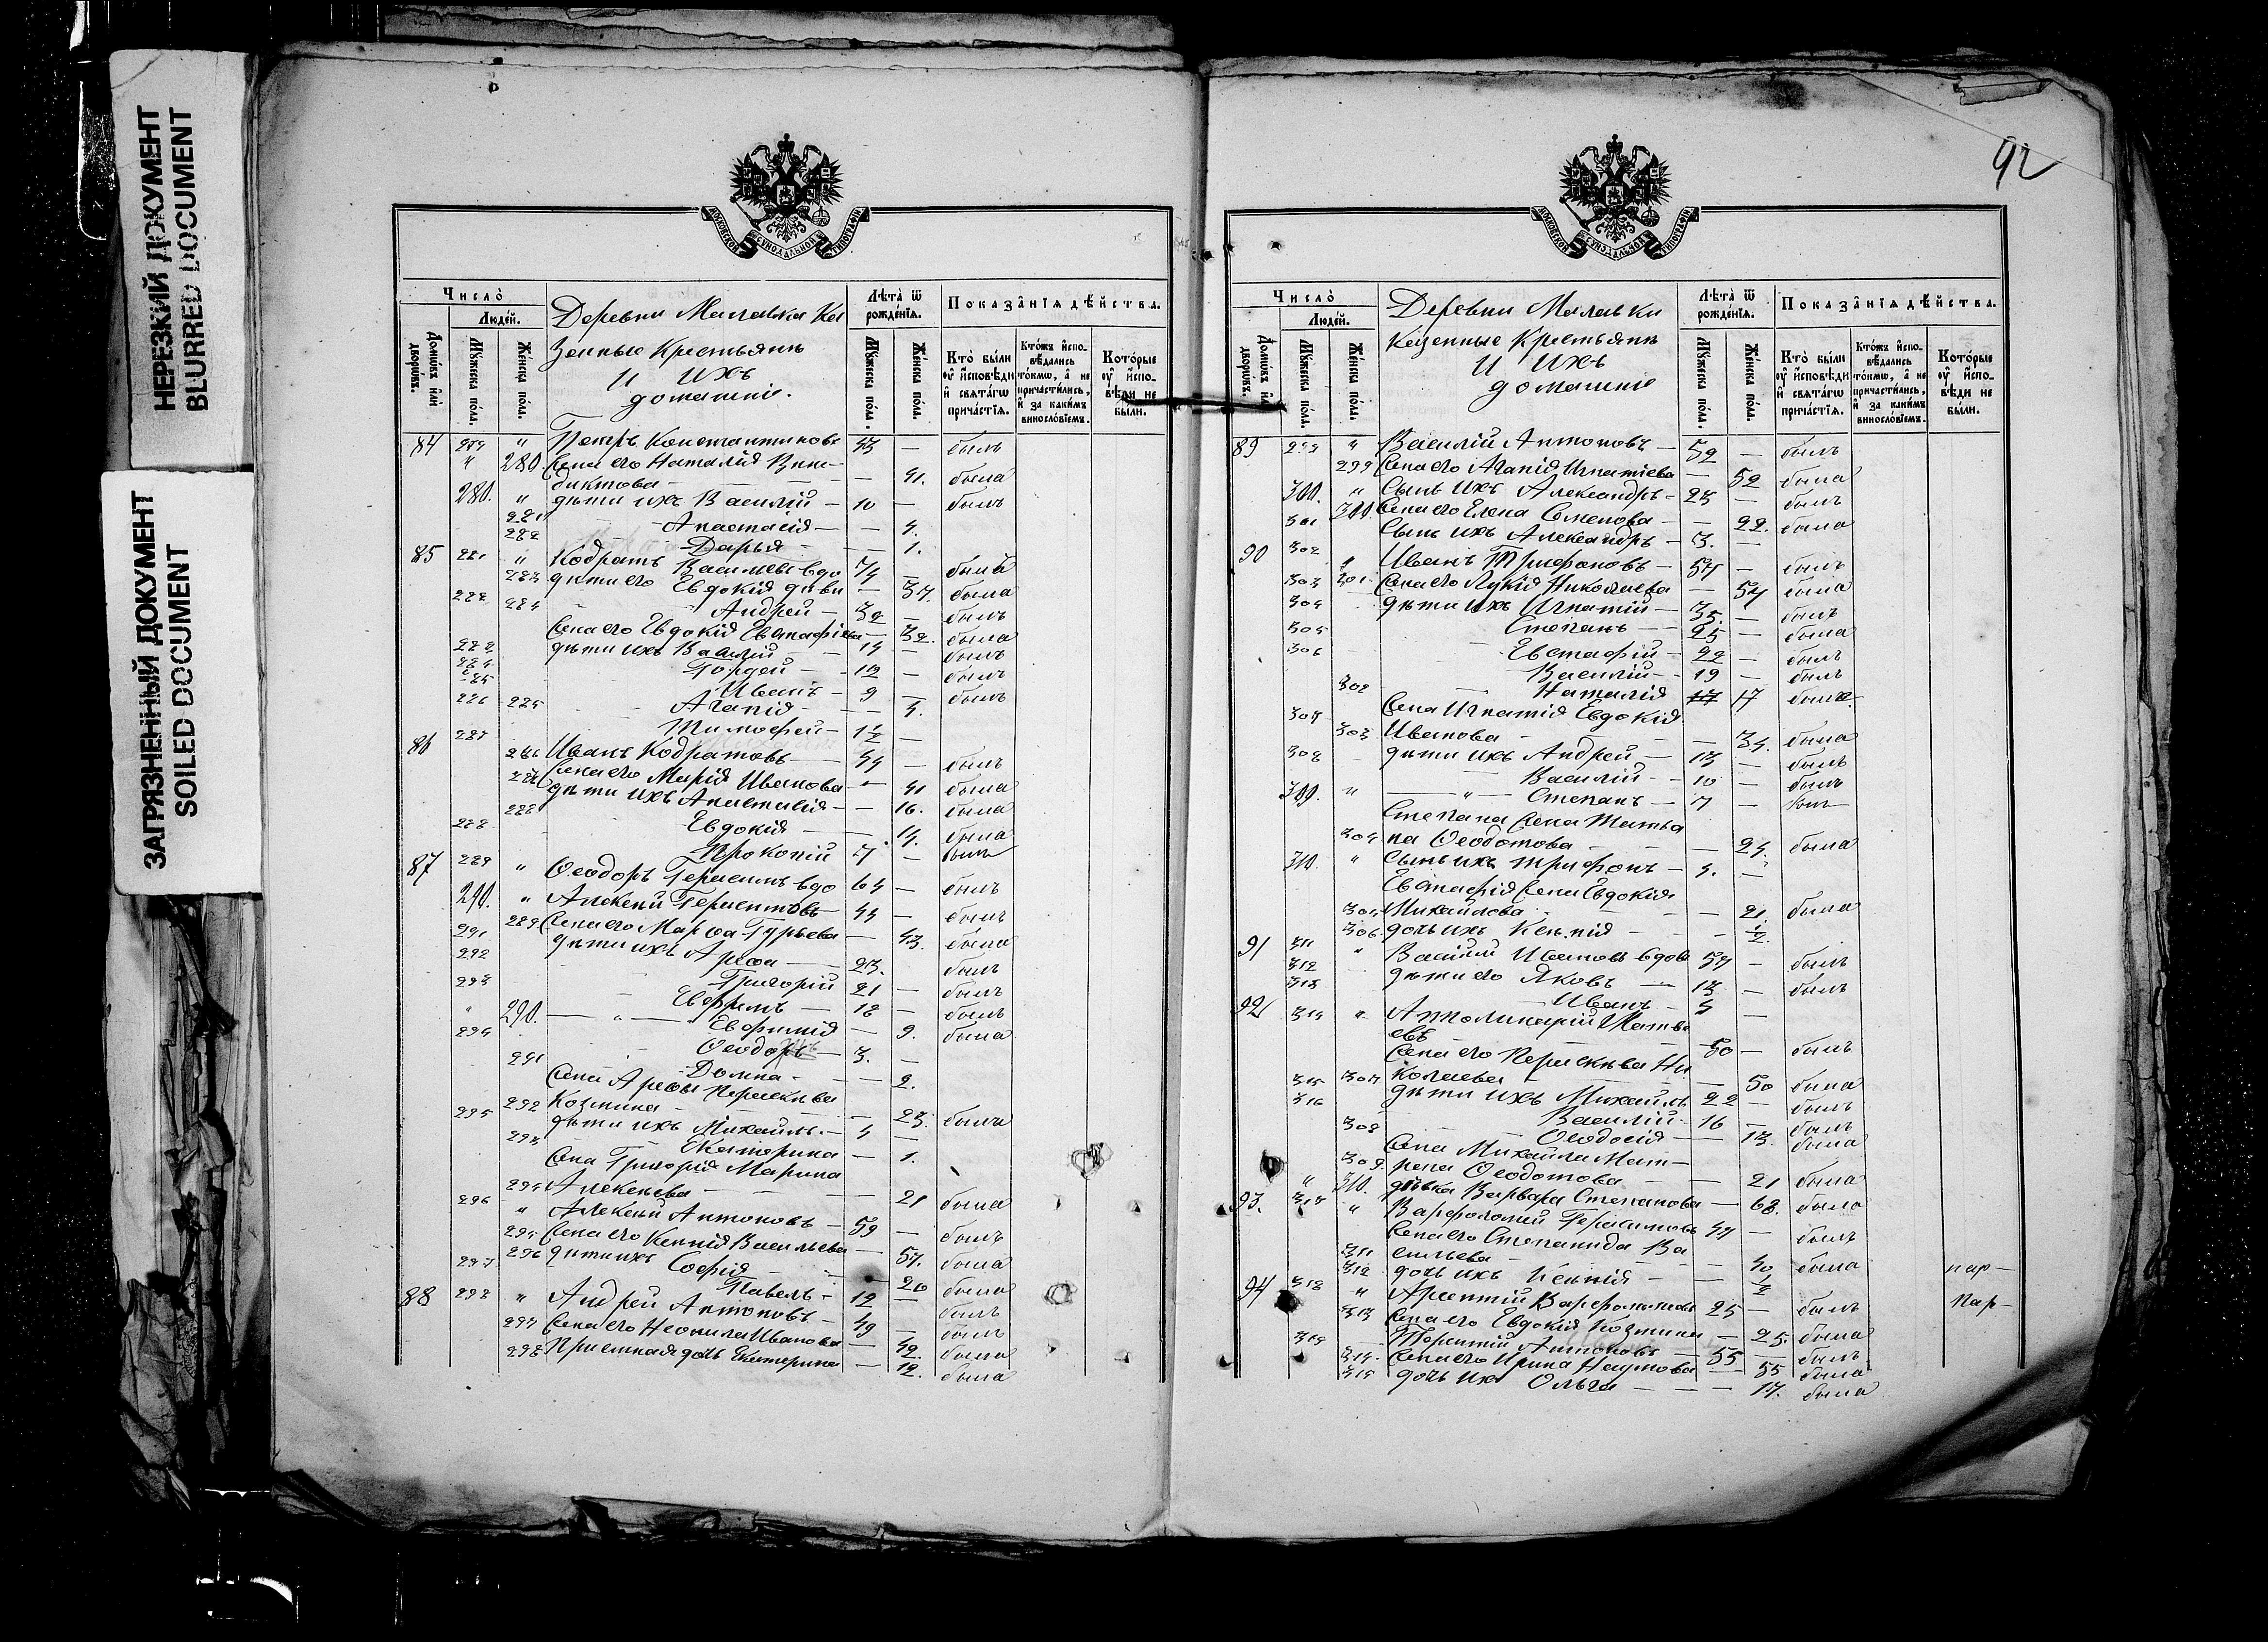 НЕРЕЗКИЙ ДОКУМЕНТ
BLURRED DOCUMENT
ЗАГРЯЗНЕННЫЙ ДОКУМЕНТ
SOILED DOCUMENT
МОСКОВСКОЙ СѴНОДАЛЬНОЙ ТИПОГРАФІИ
Число̀
Людей.
Домѡвъ и҆лѝ дворѡвъ.
Мꙋжеска пола.
Женска пола.
Деревни Малавка Ка
зенные Крестьянъ
и ихъ
домашніе.
Лѣта̀ ѿ рожденїѧ.
Мꙋжеска пола.
Женска пола.
Показа̑нїѧ дѣйства.
Кто̀ были оу҆ и҆сповѣди и҆ свѧта́гѡ прича́стїѧ.
Кто́жъ и҆спо-вѣдались то́кмѡ, а҆ не причасти́лись, и҆ за каки́мъ винословїемъ.
Кото́рые оу҆ и҆спо-вѣди не были.
84 279 " Петръ Константиновъ 43 — былъ
" 280. Жена его Наталія Вики-
диктова — — — 41. была
280. " дѣти ихъ Василій — 10 — былъ
281 Анастасія — — 4.
282 Дарья — — 1.
85 281 " Кодратъ Васильевъ вдо 74 — былъ
283 дѣти его Евдокія дѣви — 37. была
282 Андрей — 32 — былъ
284 Жена его Евдокія Евстафіева — 32. была
283 дѣти ихъ Василій — 14 — былъ
284 Гордей — 12 — былъ
285 Иванъ — 9 — былъ
285 Агапія — — 4.
286 Тимофей — 1½ —
86 287 Иванъ Кодратовъ — 44 — былъ
286 Жена его Марія Иванова — 41 была
287 дѣти ихъ Анастасія — — 16. была
288 Евдокія — — 14. была
288 Прокопій 7 — былъ
87 289 " Ѳеодоръ Герасимъ вдо 64 — былъ
290. " Алексѣй Герасимовъ 44 — былъ
289 Жена его Марѳа Гурьева — 43. была
291 дѣти ихъ Арѳа — 23. былъ
292 Григорій 21 — былъ
293 Ефримъ — 18 — былъ
" 290. — " — Евфимія — 9. была
294 Ѳеодоръ 3. —
291 Домна — — 2.
Жена Арѳы Параскѣва
292 Козмина — — 23. была
295 дѣти ихъ Михаилъ. — 4 —
293 Екатерина — 1.
Жена Григорія Марина
294 Алексѣева — — 21 была
296 " Алексѣй Антоновъ — 59 — былъ
295 Жена его Ксенія Васильева — 57. была
296 дѣти ихъ Софія — — 20 была
297 Павелъ — 12 — былъ
88 298 " Андрей Антоновъ — 49 — былъ
297 Жена его Неонила Иванова — 42. была
298 Пріемная дочь Екатерина — 12. была
92
МОСКОВСКОЙ СѴНОДАЛЬНОЙ ТИПОГРАФІИ
Число̀
Людей.
Домѡвъ и҆лѝ дворѡвъ.
Мꙋжеска пола.
Женска пола.
Деревни Малавки
Казенные Крестьянъ
и ихъ
домашніе
Лѣта̀ ѿ рожденїѧ.
Мꙋжеска пола.
Женска пола.
Показа̑нїѧ дѣйства.
Кто̀ были оу҆ и҆сповѣди и҆ свѧта́гѡ прича́стїѧ.
Кто́жъ и҆спо-вѣдались то́кмѡ, а҆ не причасти́лись, и҆ за каки́мъ винословїемъ.
Кото́рые оу҆ и҆спо-вѣди не были.
89 299 " Василій Антоновъ — 52 — былъ
299 Жена его Агапія Игнатіева — 52 была
300. " Сынъ ихъ Александръ — 23 — былъ
300. Жена его Елена Семенова — — 22. была
301 Сынъ ихъ Александръ — 3. —
90 302 " Иванъ Трифоновъ — 57 — былъ
301 Жена его Лукія Николаева — 57 была
303 дѣти ихъ Игнатій — 35. — былъ
304 Степанъ — 25 — была
305 Евстафій — 22 — былъ
306 Василій — 19 — былъ
302 Наталія 17 17 была
Жена Игнатія Евдокія
303 Иванова — — 34. была
307 дѣти ихъ Андрей — 13 — былъ
308 Василій — 10 — былъ
309. " — " — Степанъ — 7 — былъ
Степана Жена Татья
304 на Ѳеодотова — — 24. была
310. " Сынъ ихъ Трифонъ — 4. —
Евстафія Жена Евдокія
305 Михайлова — — 21. была
306. дочь ихъ Ксенія — — ½.
91 311 " Василій Ивановъ вдов 57 — былъ
312 дѣти его Яковъ — 13 — былъ
313 Иванъ — 5 —
92 314 " Апполинарій Матвѣ
евъ — — 50 — былъ
Жена его Параскѣва Ни
307 колаева — — 50 была
315 дѣти ихъ Михаилъ 22 — былъ
316 Василій — 16 — былъ
308 Ѳеодосія — — 13. была
Жена Михаила Мат-
309. рена Ѳеодотова — — 21 была
" 310. дѣвка Варвара Степанова — 68. была
93. 317 " Варфоломей Герасимовъ 47 — былъ
Жена его Степанида Ва
311 сильева — — 40 была
312 дочь ихъ Ксенія — — ½
94 318 " Арсентій Варфоломеевъ 25 — былъ
313 Жена его Евдокія Козмина — 25. была
319 Терентій Антоновъ — 55 — былъ
314. Жена его Ирина Наумова — 55 была
315 дочь ихъ Ольга — — — 17. была